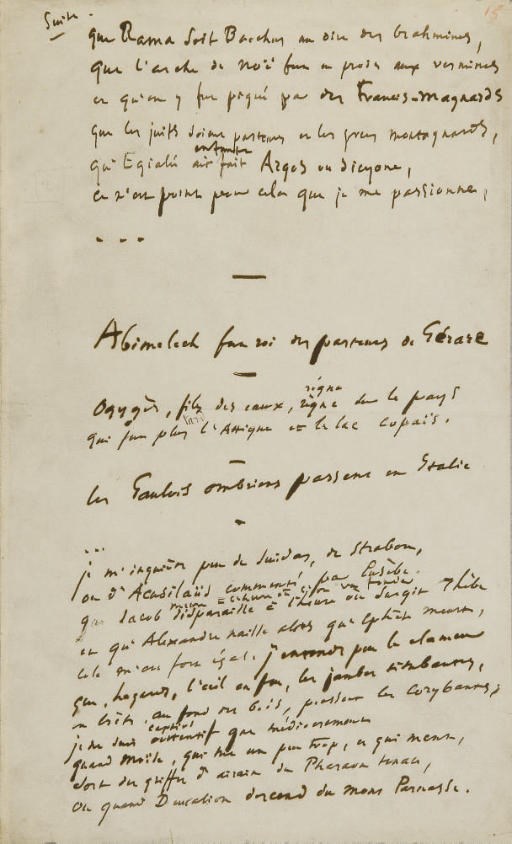 Suite
15
que Rama soit Bacchus au dire des brahmines,
que l'arche de Noé fut en proie aux vermines
et qu'on y fut piqué par des Francis-Magnards
que les juifs soient pasteurs et les grecs montagnards,
qu'Egialé ait fait Argos ou Sicyone,
ce n'est point pour cela que je me passionne,
...
Abimelech fut roi des pasteurs de Gérare
règne
Ogygès, fils des eaux, règne sur le pays
qui fut plus tard l'Attique et le lac Copaïs.
les Gaulois ombriens passent en Italie
...
je m'inquiète peu de Suidas, de Strabon,
ou d'Acusilaüs commenté par Eusèbe.
que Jacob disparaisse à l'heure où surgit Thèbe
et qu'Alexandre naisse alors que meurt,
cela m'est fort égal. j'entends peu la clameur
que, hagards, l'œil en feu, les jambes titubantes,
en Crète, au fond des bois, poussent les corybantes,
je ne suis attentif que médiocrement
quand Moïse, qui tue un peu trop, et qui ment,
sort des griffes d'airain du Pharaon tenace,
ou quand Deucalion descend du mont Parnasse.